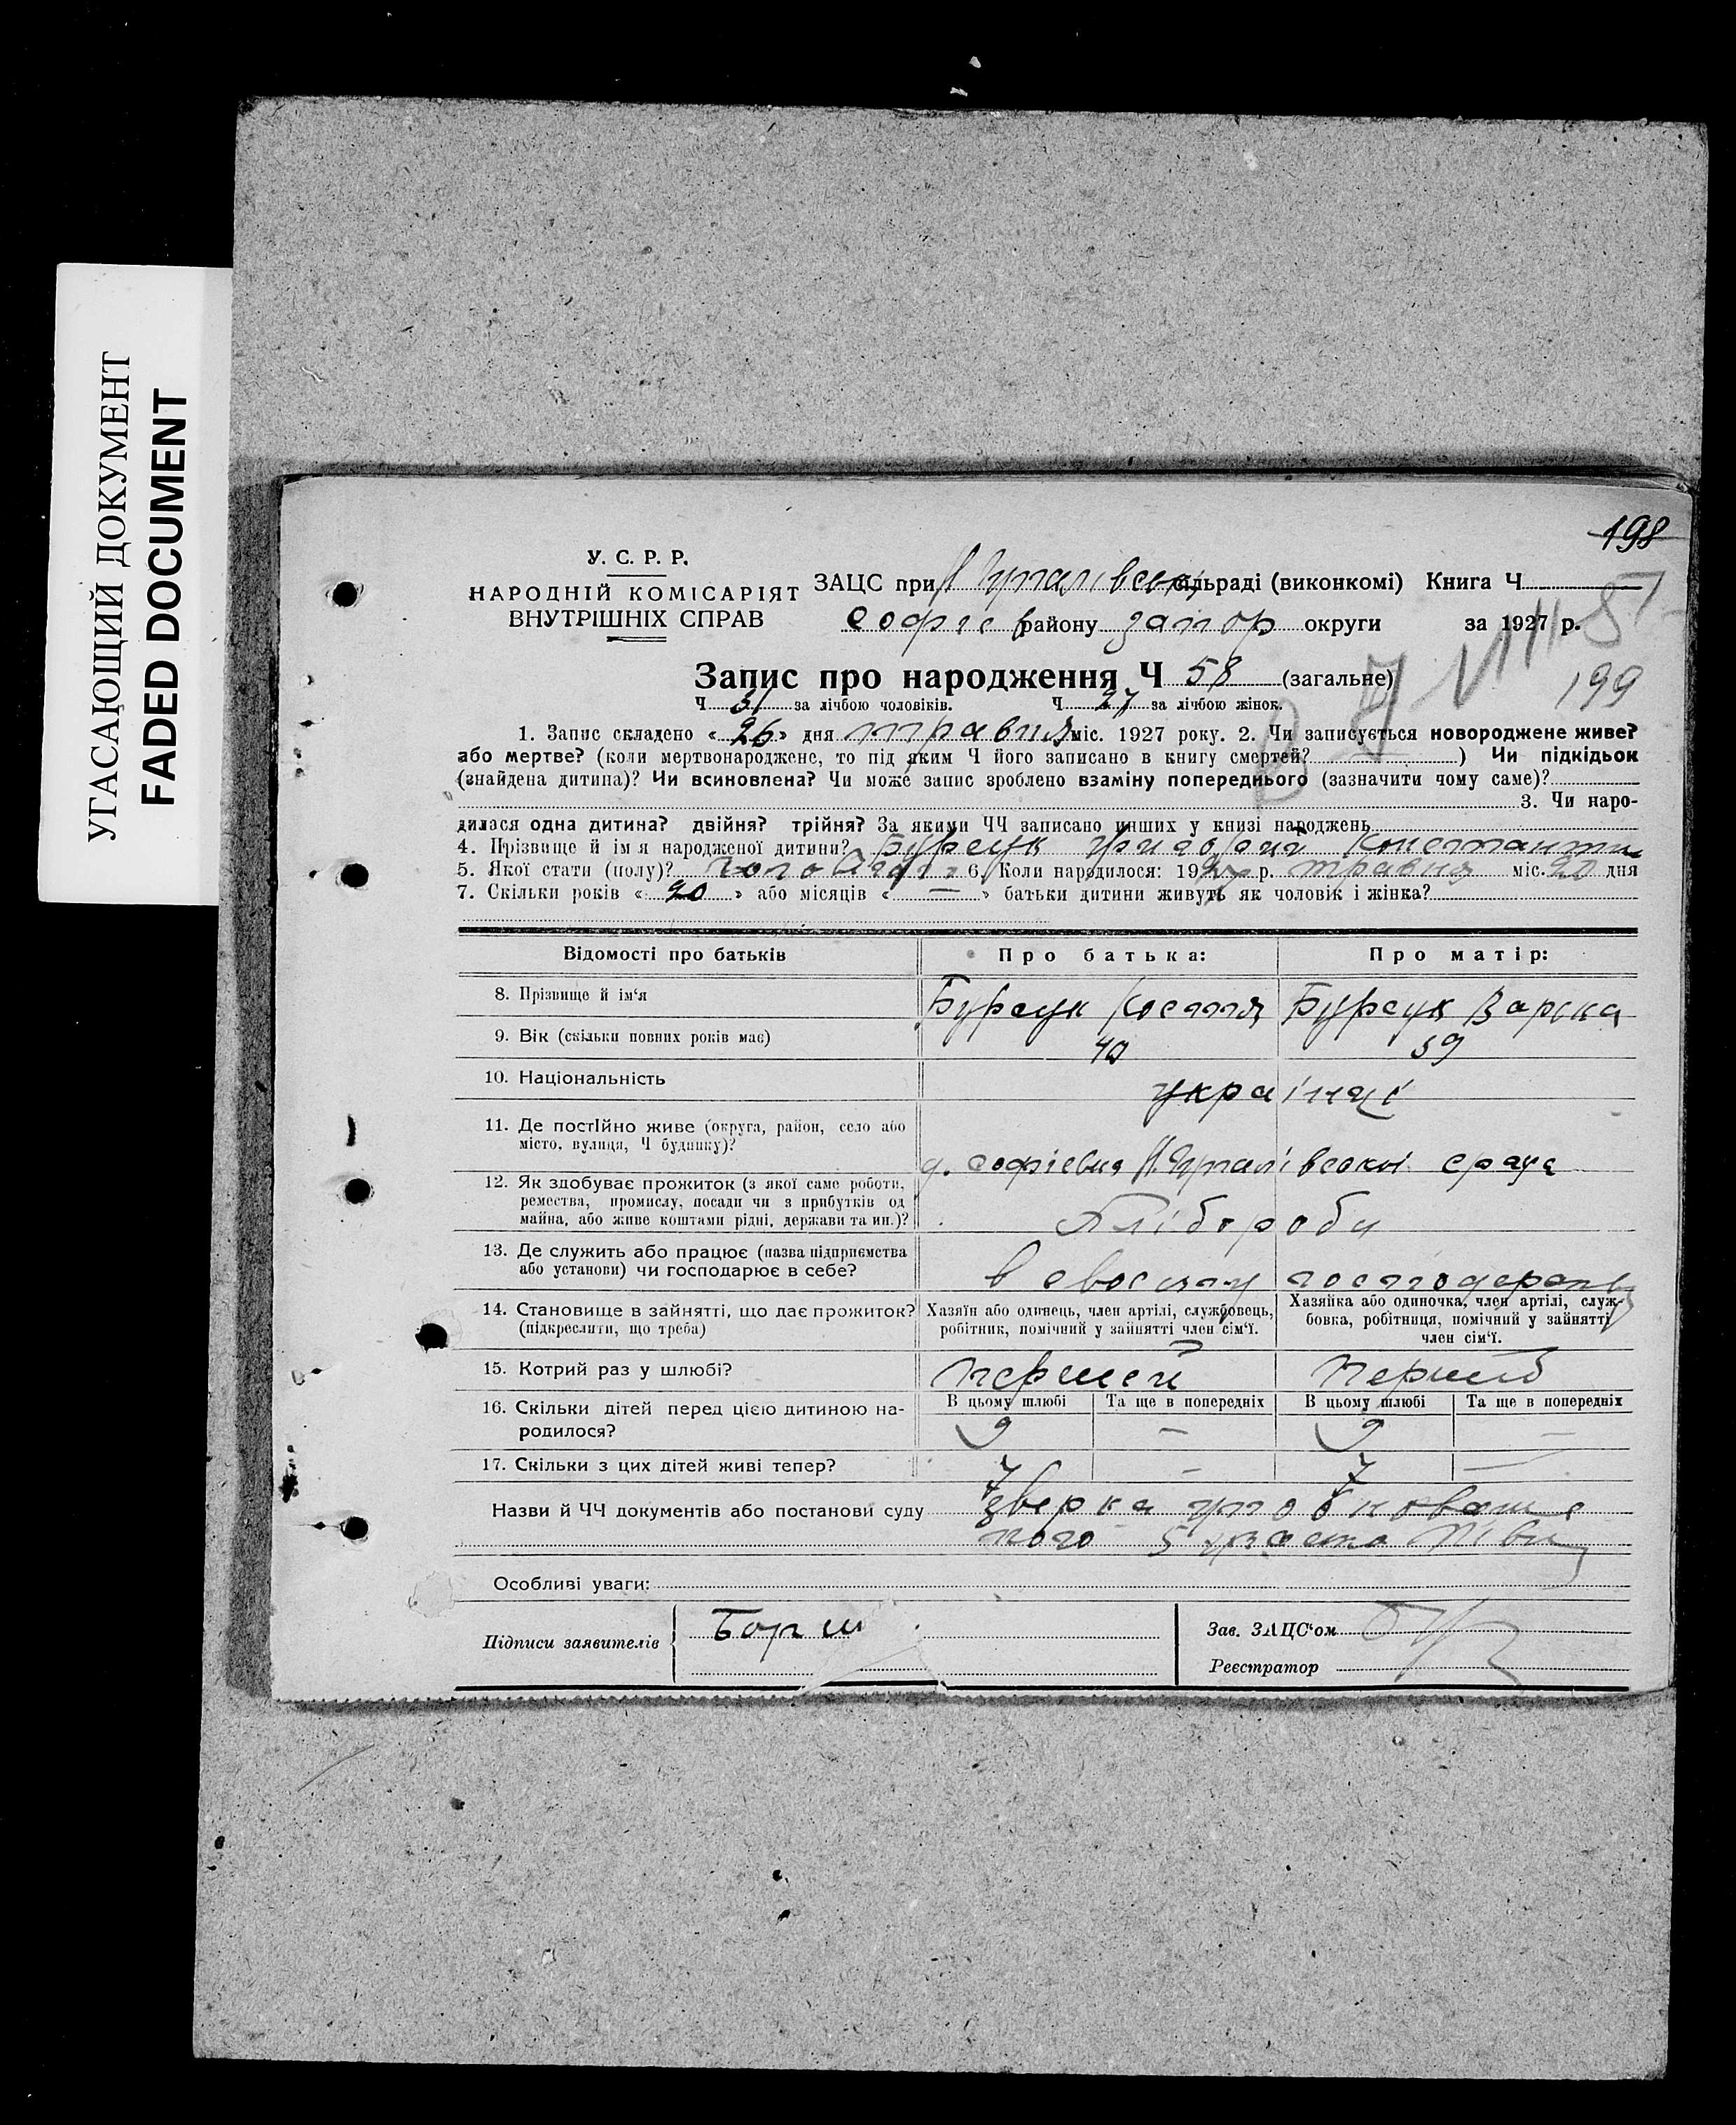 УГАСАЮЩИЙ ДОКУМЕНТ
FADED DOCUMENT
198
У. С. Р. Р.
НАРОДНІЙ КОМІСАРІЯТ
ВНУТРІШНІХ СПРАВ
ЗАЦС при сільраді (виконкомі) Книга Ч
Софіев району запор округи за 1927 р.
199
Запис про народження Ч 58 (загальне)
Ч 31 за лічбою чоловіків. Ч 27 за лічбою жінок.
1. Запис складено « 26 » дня травня міс. 1927 року. 2. Чи записується новороджене живе?
або мертве? (коли мертвонароджене, то під яким Ч його записано в книгу смертей? ) Чи підкідьок
(знайдена дитина)? Чи всиновлена? Чи може запис зроблено взаміну попереднього (зазначити чому саме)?
3. Чи наро-
дилася одна дитина? двійня? трійня? За якими ЧЧ записано инших у книзі народжень
4. Прізвище й ім'я народженої дитини? Бурсук Григорій Константин
5. Якої стати (полу)? 6. Коли народилося: 1927 р. травня міс. 20 дня
7. Скільки років « 20 » або місяців « — » батьки дитини живуть як чоловік і жінка?
Відомості про батьків Про батька: Про матір:
8. Прізвище й ім'я Бурсук Костя Бурсук Варька
9. Вік (скільки повних років має) 40 39
10. Національність українці
11. Де постійно живе (округа, район, село або
місто, вулиця, Ч будинку)?
д. Софієвка
12. Як здобуває прожиток (з якої саме роботи,
ремества, промислу, посади чи з прибутків од
майна, або живе коштами рідні, держави та ин.)?
Хлібороби
13. Де служить або працює (назва підприємства
або установи) чи господарює в себе?
в своєму господарстві
14. Становище в зайнятті, що дає прожиток?
(підкреслити, що треба)
Хазяїн або одинець, член артілі, службовець,
робітник, помічний у зайнятті член сім'ї.
Хазяйка або одиночка, член артілі, служ-
бовка, робітниця, помічний у зайнятті
член сім'ї.
15. Котрий раз у шлюбі? першей перший
16. Скільки дітей перед цією дитиною на-
родилося?
В цьому шлюбі Та ще в попередніх В цьому шлюбі Та ще в попередніх
9 — 9 —
17. Скільки з цих дітей живі тепер? 7 — 7 —
Назви й ЧЧ документів або постанови суду
Особливі уваги:
Підписи заявителів
Зав. ЗАЦС'ом
Реєстратор